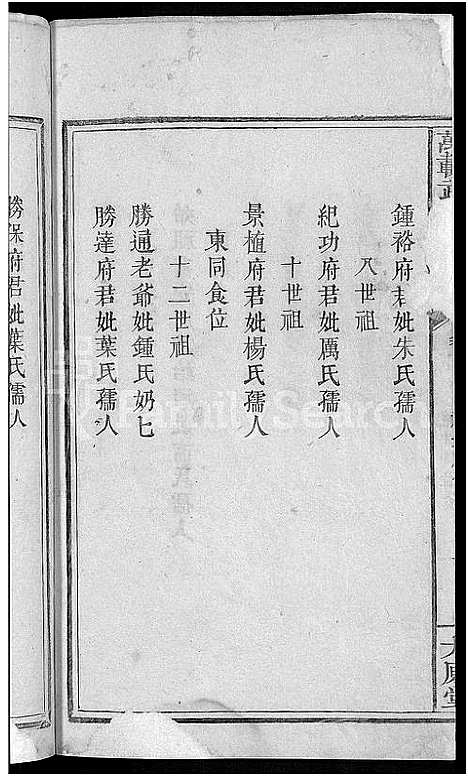 鍾裕府君妣朱氏孺人
八世祖
紀功府君妣厲氏孺人
十世祖
景植府君妣楊氏孺人
東同食位
十二世祖
勝通老爺妣鍾氏奶七
勝達府君妣葉氏孺人
勝保府君妣葉氏孺人
萬載
原堂
FamilySearch